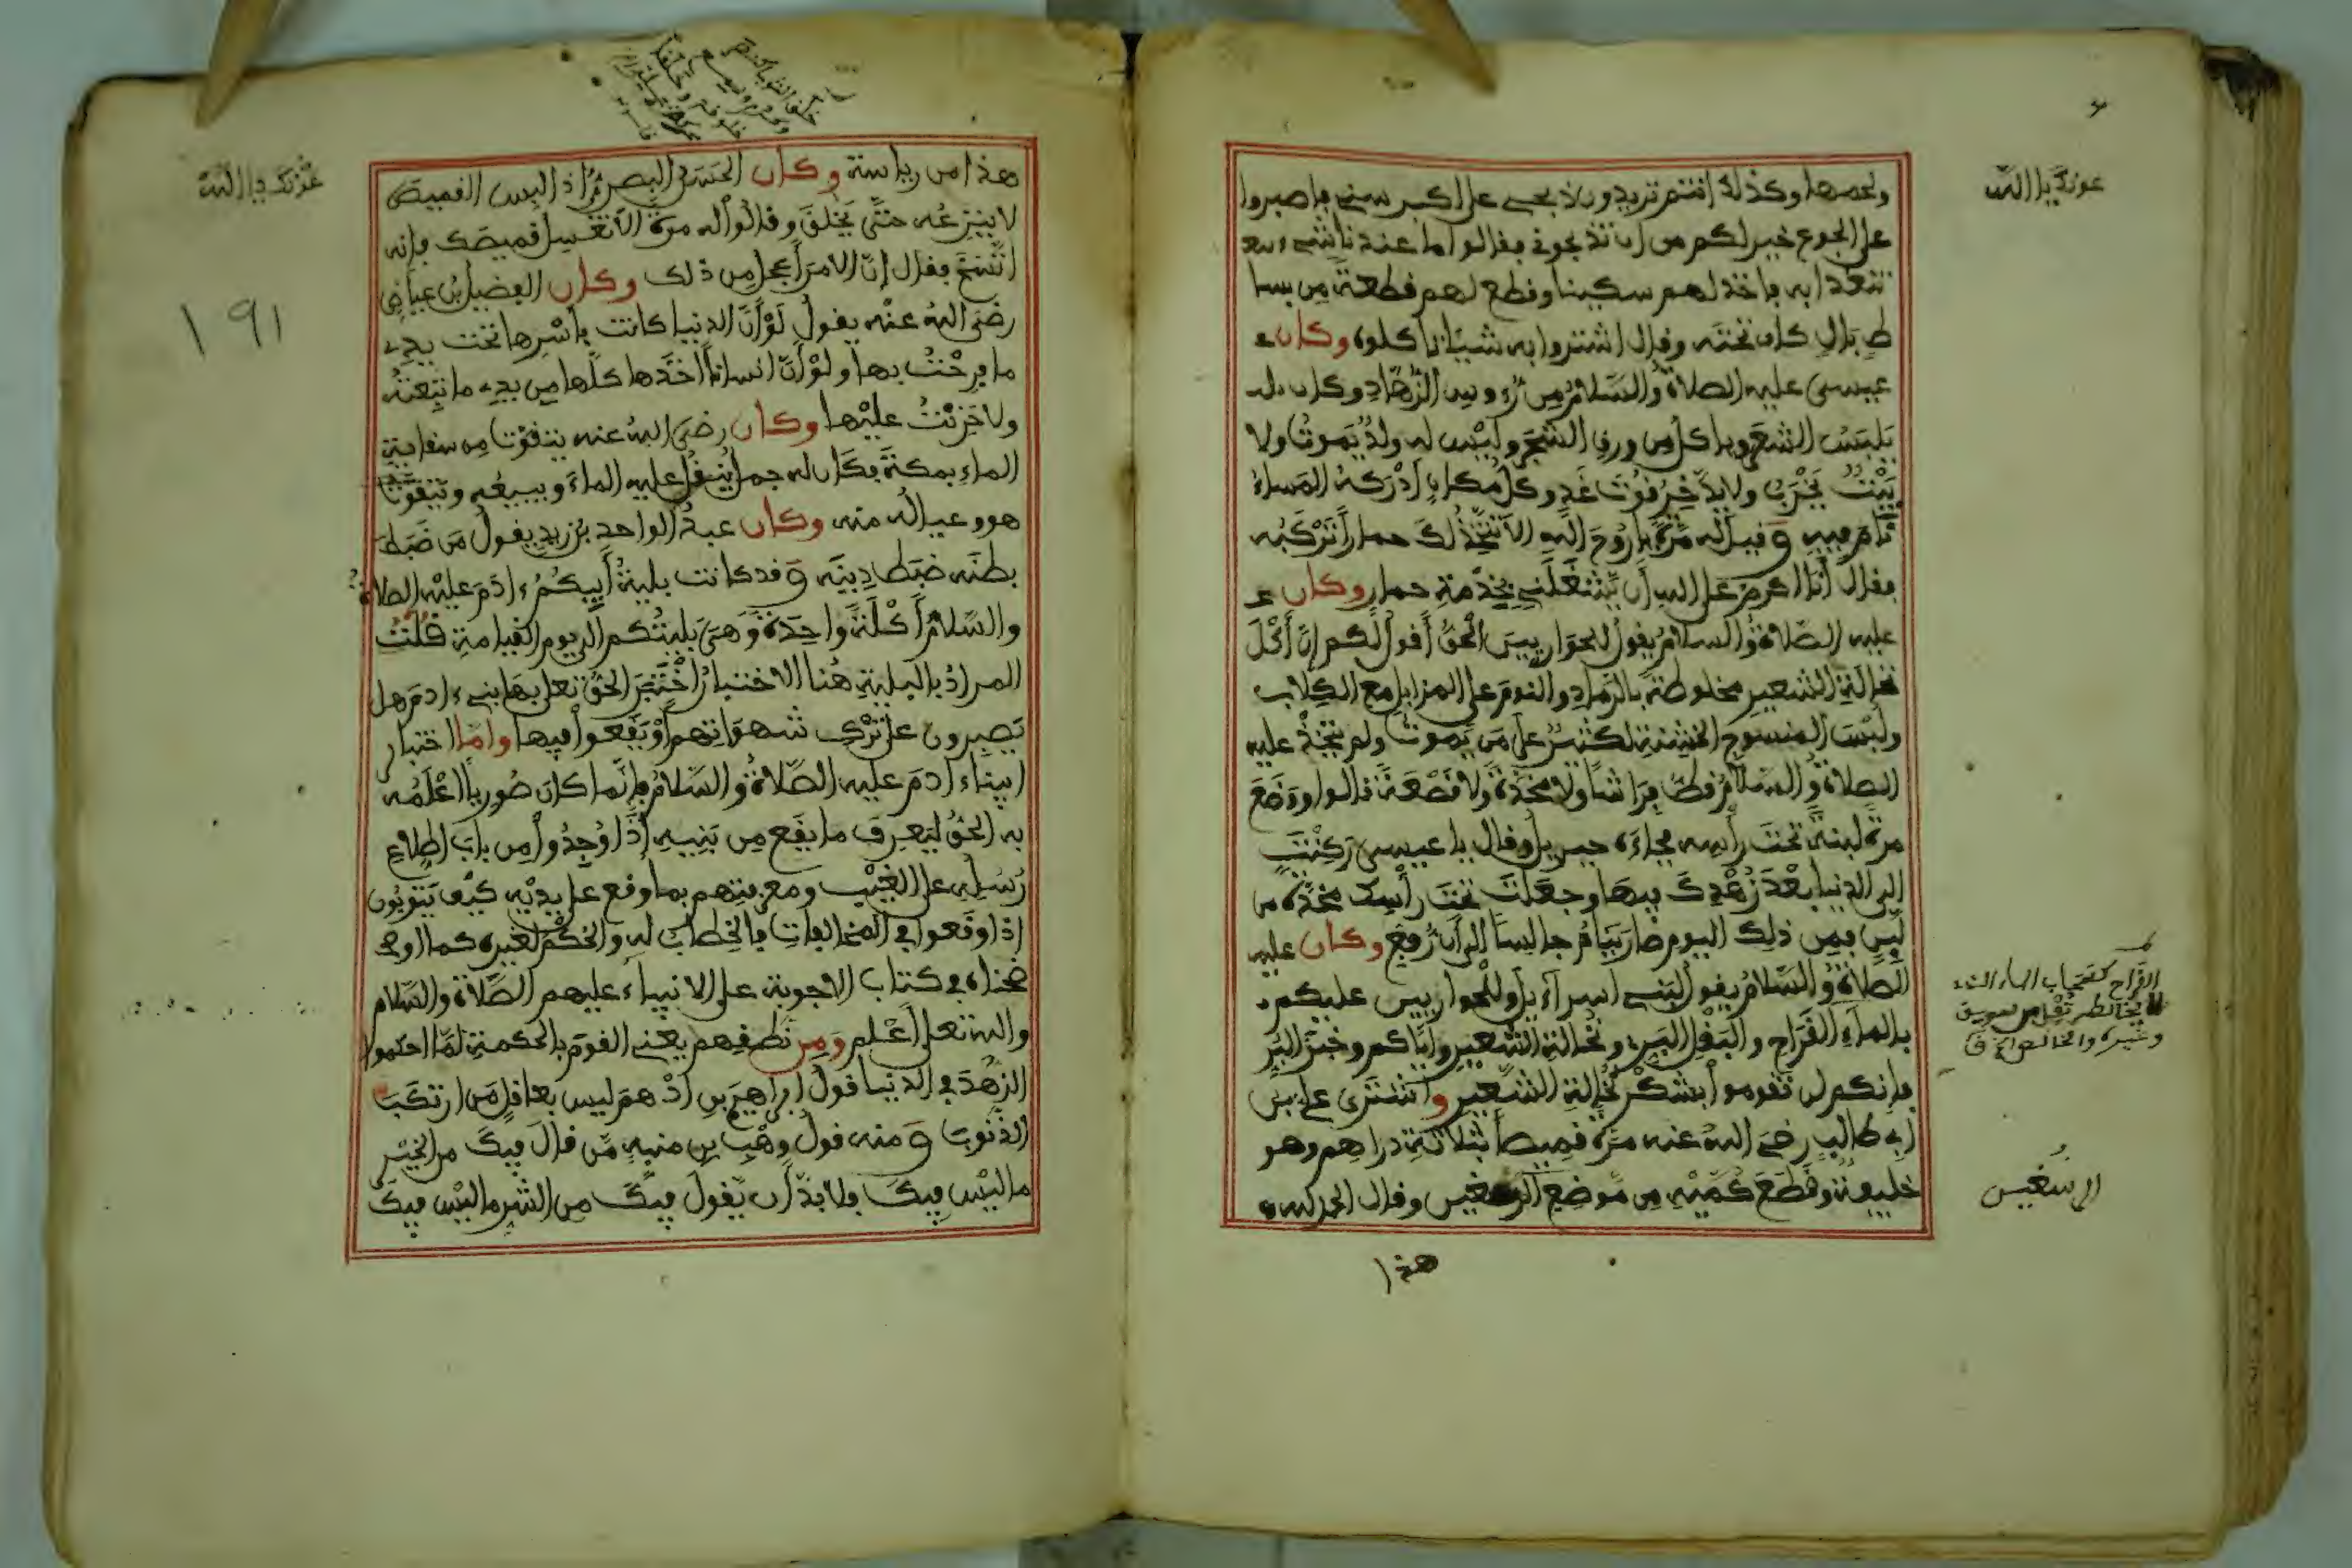 عونك يا الله
ولحمها وكذلك أنتم تريدون لا يجيء على أكبر سني فاصبروا
على الجوع خير لكم من أن تذبحوني فقالوا ما عندنا شيء
نتغدا به فأخذ لهم سكينا وقطع لهم قطعة من بسا
ط بال كان تحته وقال اشتروا به شيئا نأكلوه وكان
عيسى عليه الصلاة والسلام من رءوس الزهاد وكان
يلبس الشعر ويأكل من ورق الشجر وليس له ولد يموت ولا
بيت يخرب ولا يدخر قوت غد وكل مكان أدركه المساء
نام فيه وقيل له مرة يا روح الله ألا تتخذ لك حمارا تركبه
فقال أنا أكرم على الله أن يشغلني بخدمة حمار وكان
عليه الصلاة والسلام يقول للحواريين الحق أقول لكم إن أكل
نخالة الشعير مخلوطة بالرماد والنوم على المزابل مع الكلاب
ولبس المنسوح الخشنة لكثير على من يموت ولم يتخذ عليه
الصلاة والسلام قط فراشا ولا مخدة ولا قصعة قالوا ووضع
مرة لبنة تحت رأسه فجاءه جبريل وقال يا عيسى ركنت
إلى الدنيا بعد زهدك فيها وجعلت تحت رأسك مخدة من
لبن فمن ذلك اليوم صار ينام جالسا إلى أن رفع وكان عليه
الصلاة والسلام يقول لبني اسرآءيل وللحواريين عليكم
بالماء القراح والبقل البري ونخالة الشعير وإياكم وخبز البر
فإنكم لن تقوموا بشكر نخالة الشعير واشترى علي بن
أبي طالب رضي الله عنه مرة قميصا بثلاثة دراهم وهو
خليفة وقطع كميه من موضع الرسغين وقال الحمد لله
هذا
القراح كسحاب الماء
لا يخالطه ثفل من سويق
وغيره والخالص ق
الرسغين
عونك يا الله
١٩١
هذا من رياسته وكان الحسن البصري إذا لبس القميص
لا ينزعه حتى يخلق وقالوا له مرة ألا تغسل قميصك فإنه
اتسخ فقال إن الأمر أعجل من ذلك وكان الفضيل بن عياض
رضي الله عنه يقول لو أن الدنيا كانت بأسرها تحت يدي
ما فرحت بها ولو أن انسانا أخذها كلها من يدي ما تبعته
ولا حزنت عليها وكان رضي الله عنه يتقوت من سقاية
الماء بمكة فكان له جمل ينقل عليه الماء ويبيعه ويتقوت
هو وعياله منه وكان عبد الواحد بن زيد يقول من ضبط
بطنه ضبط دينه وقد كانت بلية أبيكم ءادم عليه الصلاة
والسلام أكلة واحدة وهي بليتكم إلى يوم القيامة قلت
المراد بالبلية هنا الاختبار اختبر الحق تعلى بها بني ءادم هل
يصبرون على ترك شهواتهم أو يقعوا فيها وأما اختبار
ابينا ءادم عليه الصلاة والسلام فإنما كان صوريا أعلمه
به الحق ليعرف ما يقع من بنيه إذا وجدوا من باب اطلاع
رسله على الغيب ومعرفتهم بما وقع على يديه كيف يتوبون
إذا وقعوا في المخالفات فالخطاب له والحكم لغيره كما أو
ضحناه في كتاب الأجوبة على الأنبياء عليهم الصلاة والسلام
والله تعلى أعلم ومن نطقهم يعني القوم بالحكمة لما أحكموا
الزهد في الدنيا قول إبراهيم بن أدهم ليس بعاقل من ارتكب
الذنوب ومنه قول وهب بن منبه من قال فيك من الخير
ما ليس فيك ولا بد أن يقول فيك من الشر ما ليس فيك